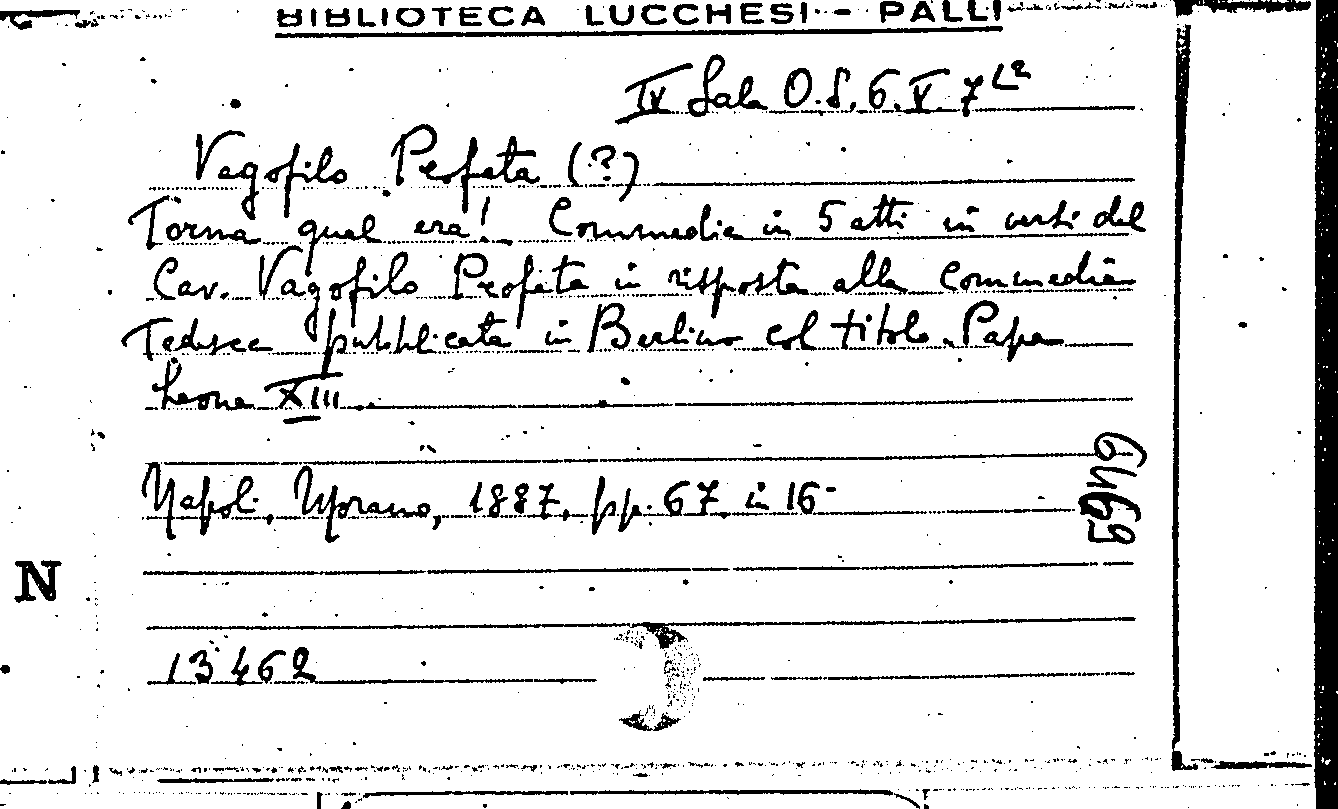 BIBLIOTECA LUCCHESI - PALLI
IV Sala O.S. 6. V. 7
Vagofilo Peofeta (?)
Torna qual era! Commedia in 5 atti in versi del
Cav. Vagofilo Peofeta in risposta alla Commedia
Tedesca pubblicata in Berlino col titolo Papa
Leone XIII.
Napoli, Morano, 1887, pp. 67 in 16-
N
13462